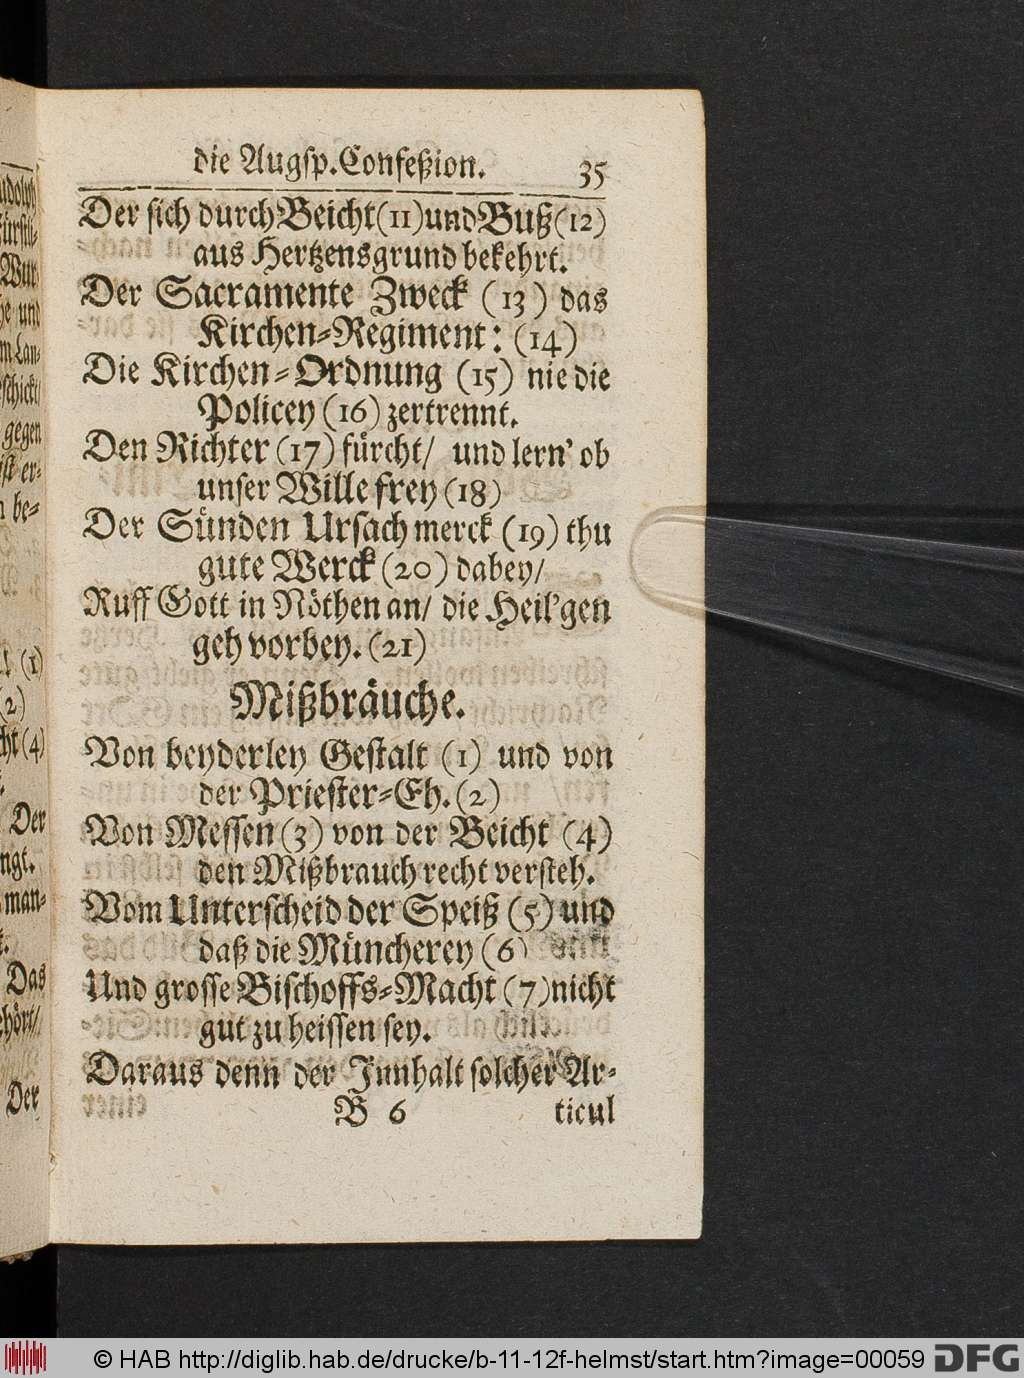 die Augsp. Confeßion. 35
Der sich durch Beicht (11) und Buß (12)
aus Hertzensgrund bekehrt.
Der Sacramente Zweck (13) das
Kirchen-Regiment: (14)
Die Kirchen-Ordnung (15) nie die
Policey (16) zertrennt.
Den Richter (17) fürcht/ und lern' ob
unser Wille frey (18)
Der Sünden Ursach merck (19) thu
gute Werck (20) dabey/
Ruff Gott in Nöthen an/ die Heil'gen
geh vorbey. (21)
Mißbräuche.
Von beyderley Gestalt (1) und von
der Priester-Eh. (2)
Von Messen (3) von der Beicht (4)
den Mißbrauch recht versteh.
Vom Unterscheid der Speiß (5) und
daß die Müncherey (6)
Und grosse Bischoffs-Macht (7) nicht
gut zu heissen sey.
Daraus denn der Innhalt solcher Ar-
B 6 ticul
© HAB http://diglib.hab.de/drucke/b-11-12f-helmst/start.htm?image=00059 DFG